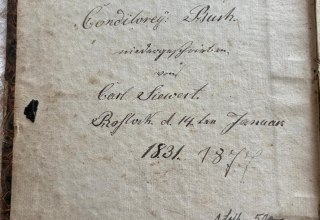 Conditorey: Buch.
niedergeschrieben
von
Carl Siewert.
Rostock d. 14ten Januar
1831. 1877